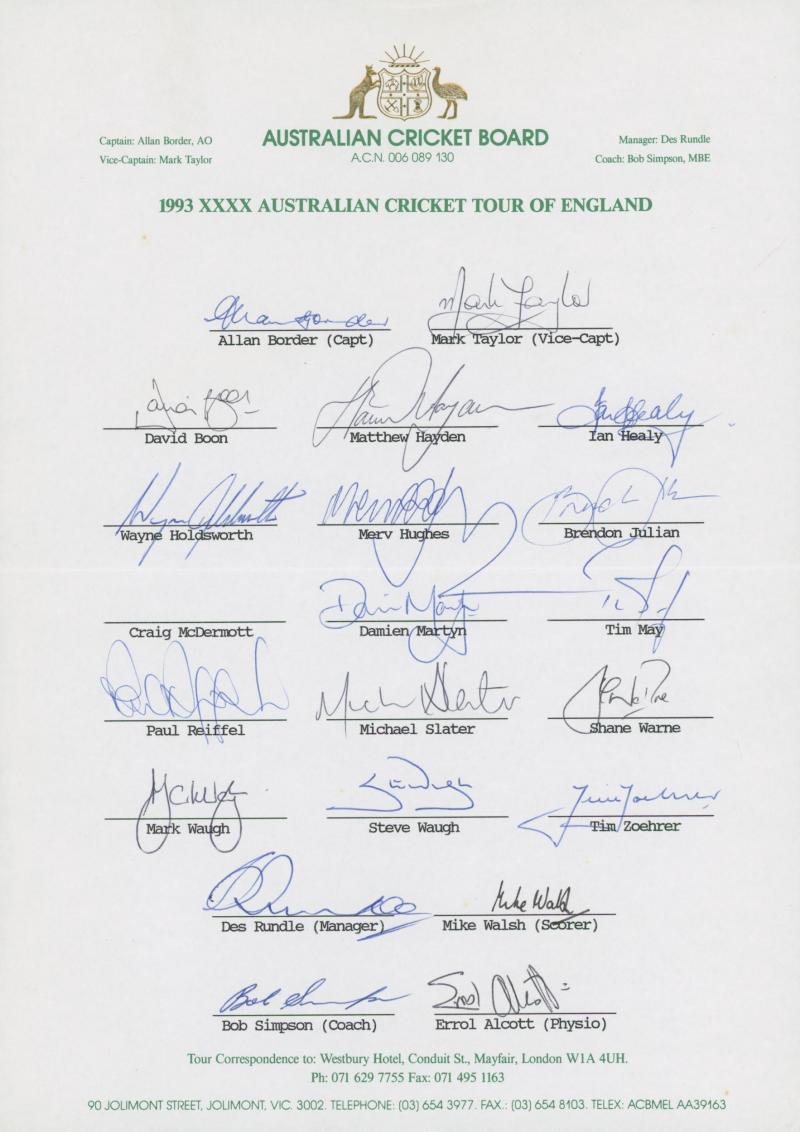 AUSTRALIAN CRICKET BOARD
A.C.N. 006 089 130
Captain: Allan Border, AO
Vice-Captain: Mark Taylor
Manager: Des Rundle
Coach: Bob Simpson, MBE
1993 XXXX AUSTRALIAN CRICKET TOUR OF ENGLAND
Allan Border
Mark Taylor
Allan Border (Capt) Mark Taylor (Vice-Capt)
David Boon
Matthew Hayden
Ian Healy
David Boon Matthew Hayden Ian Healy
Wayne Holdsworth
Merv Hughes
Wayne Holdsworth Merv Hughes Brendon Julian
Damien Martyn
Craig McDermott Damien Martyn Tim May
Paul Reiffel
Michael Slater
Paul Reiffel Michael Slater Shane Warne
Mark Waugh
Steve Waugh
Tim Zoehrer
Mark Waugh Steve Waugh Tim Zoehrer
D Rundle
Mike Walsh
Des Rundle (Manager) Mike Walsh (Scorer)
Bob Simpson
Errol Alcott
Bob Simpson (Coach) Errol Alcott (Physio)
Tour Correspondence to: Westbury Hotel, Conduit St., Mayfair, London W1A 4UH.
Ph: 071 629 7755 Fax: 071 495 1163
90 JOLIMONT STREET, JOLIMONT, VIC. 3002. TELEPHONE: (03) 654 3977. FAX.: (03) 654 8103. TELEX: ACBMEL AA39163